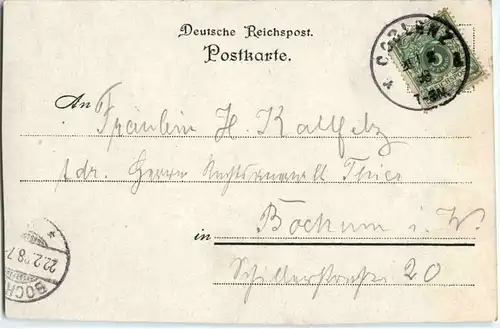 Deutsche Reichspost.
Postkarte.
COBLENZ
An Fräulein H. Kallfelz
Adr. Herrn Rechtsanwalt
Bochum i. W.
in
Schillerstraße 20
22.2.98.7
BOCH